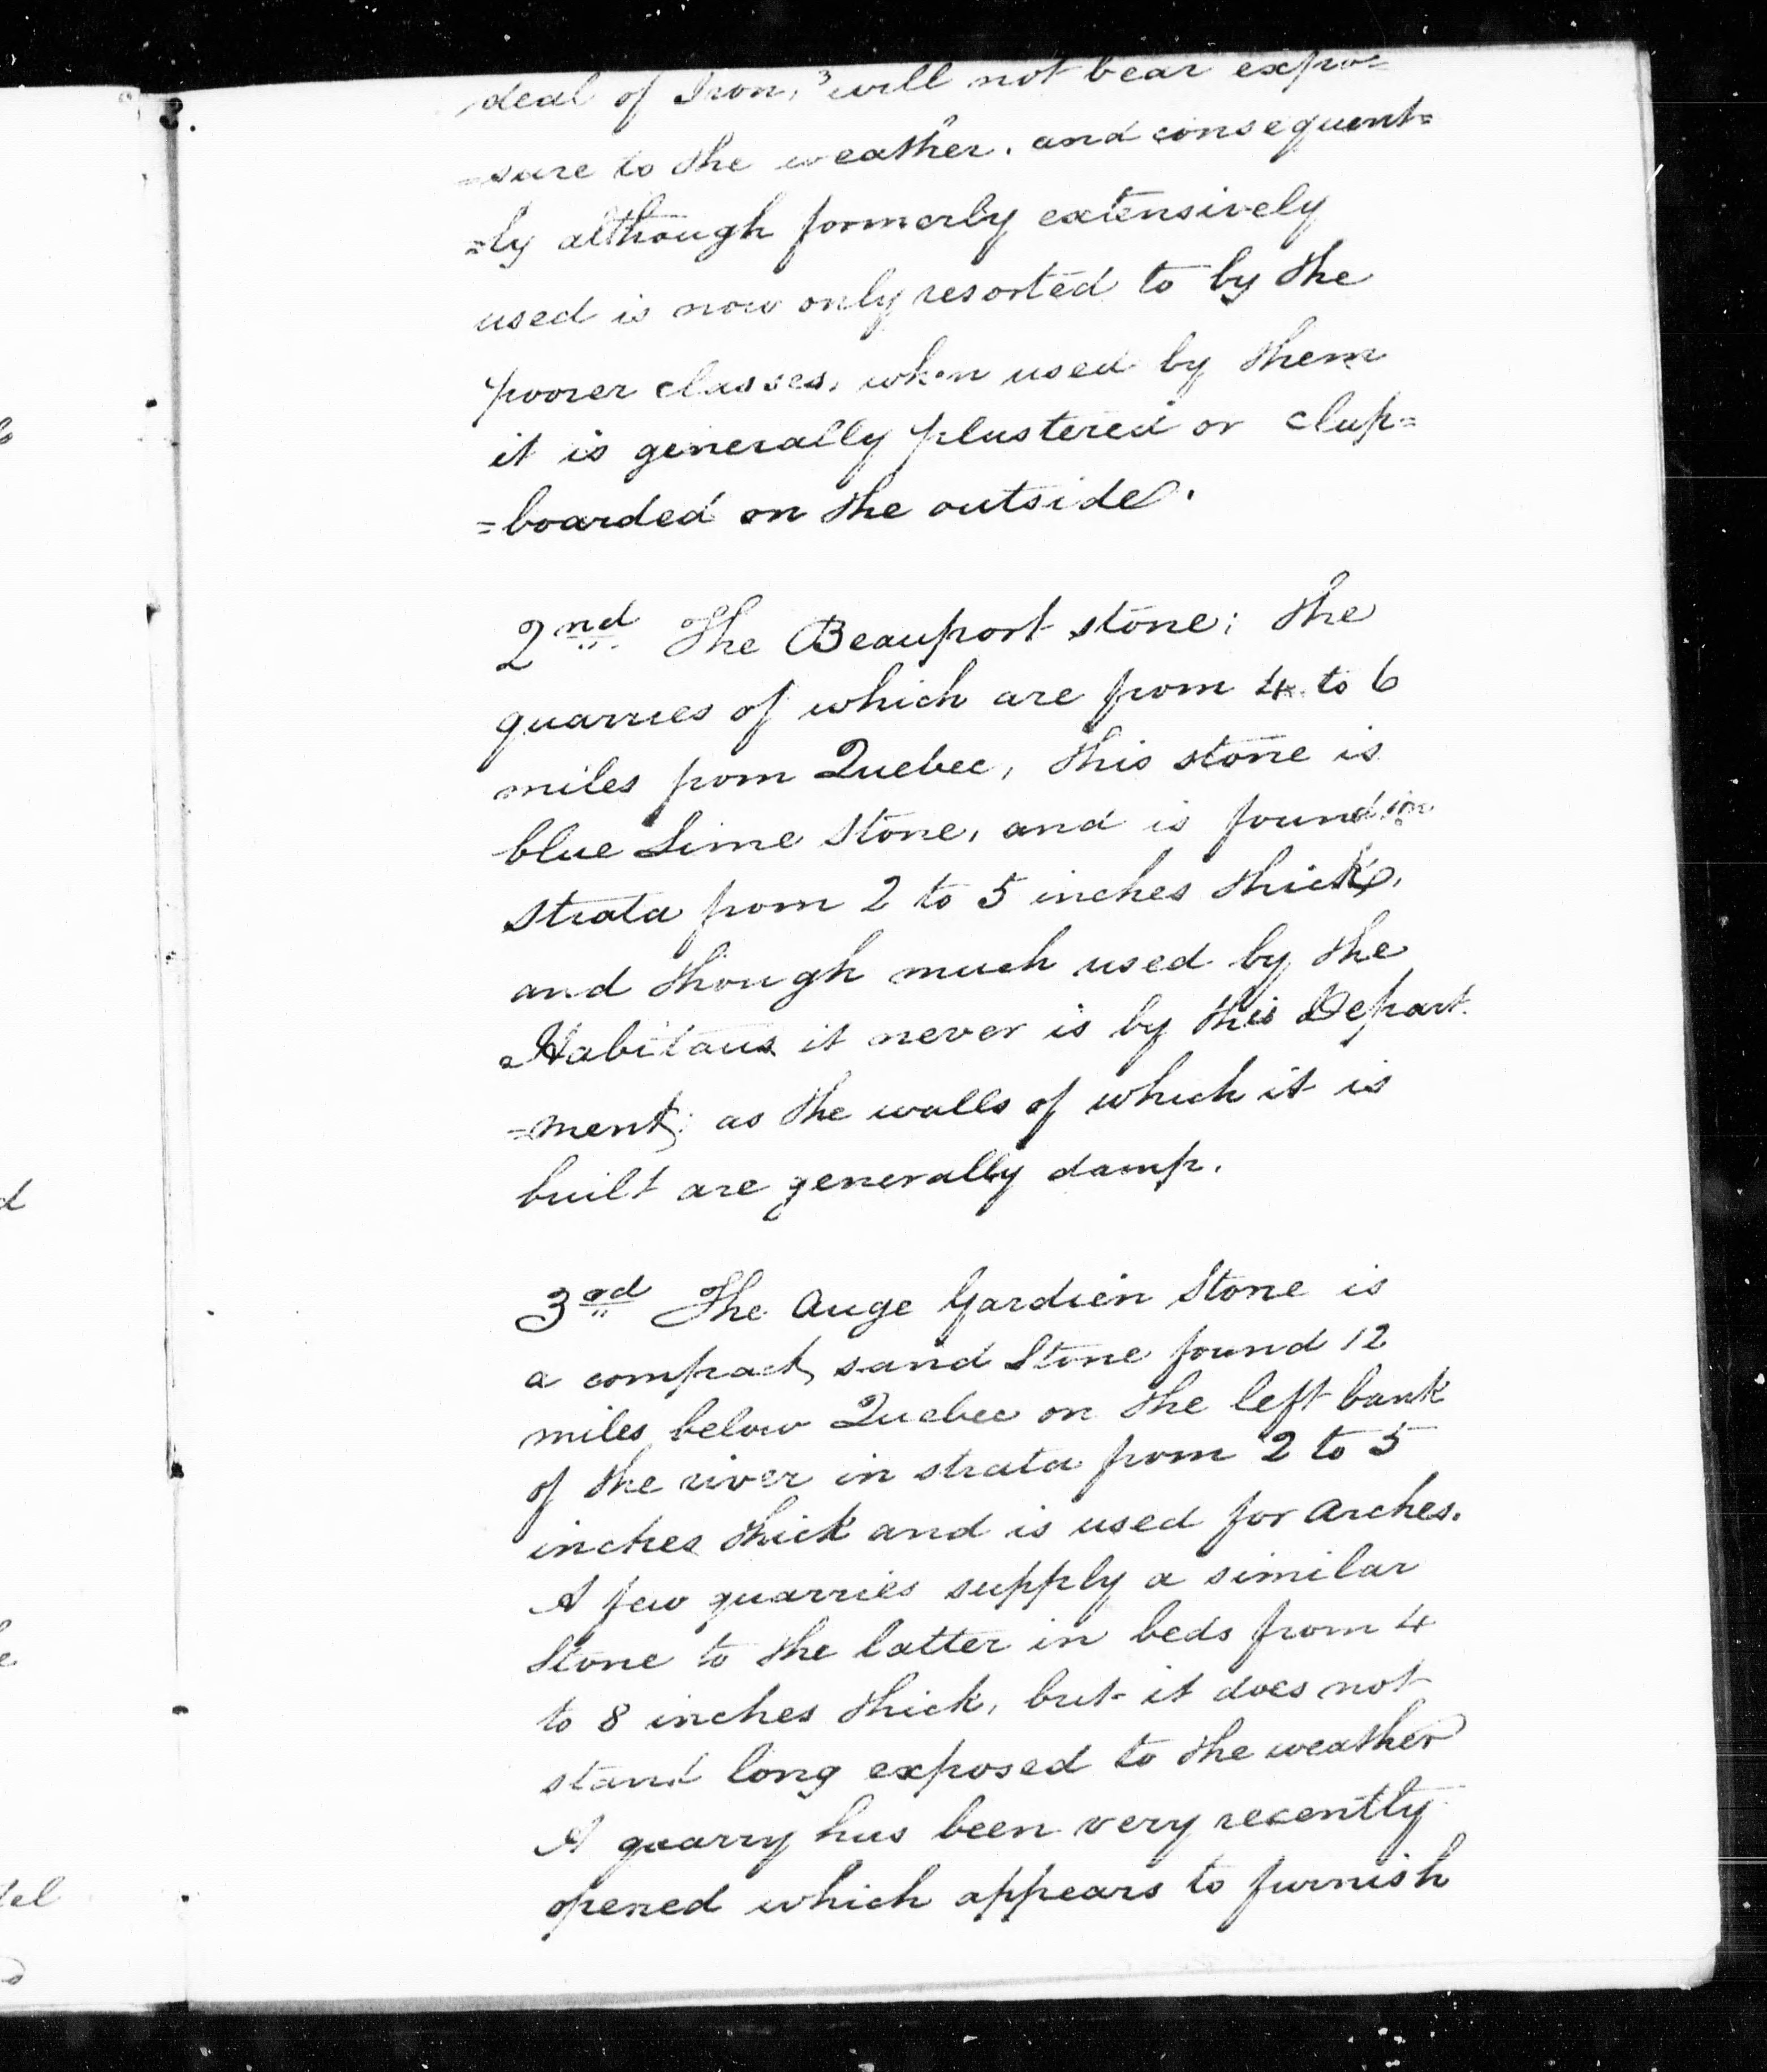 deal of Iron, will not bear expo=
=sure to the weather, and consequent=
=ly although formerly extensively
used is now only resorted to by the
poorer classes, when used by them
it is generally plastered or clap=
=boarded on the outside.
2nd The Beauport stone; the
quarries of which are from 4 to 6
miles from Quebec, this stone is
blue Lime Stone, and is found in
Strata from 2 to 5 inches thick,
and though much used by the
Habitans it never is by this Depart
=ment; as the walls of which it is
built are generally damp.
3rd The Ange Gardien Stone is
a compact sand Stone found 12
miles below Quebec on the left bank
of the river in strata from 2 to 5
inches thick and is used for Arches.
A few quarries supply a similar
Stone to the latter in beds from 4
to 8 inches thick, but it does not
stand long exposed to the weather
A quarry has been very recently
opened which appears to furnish